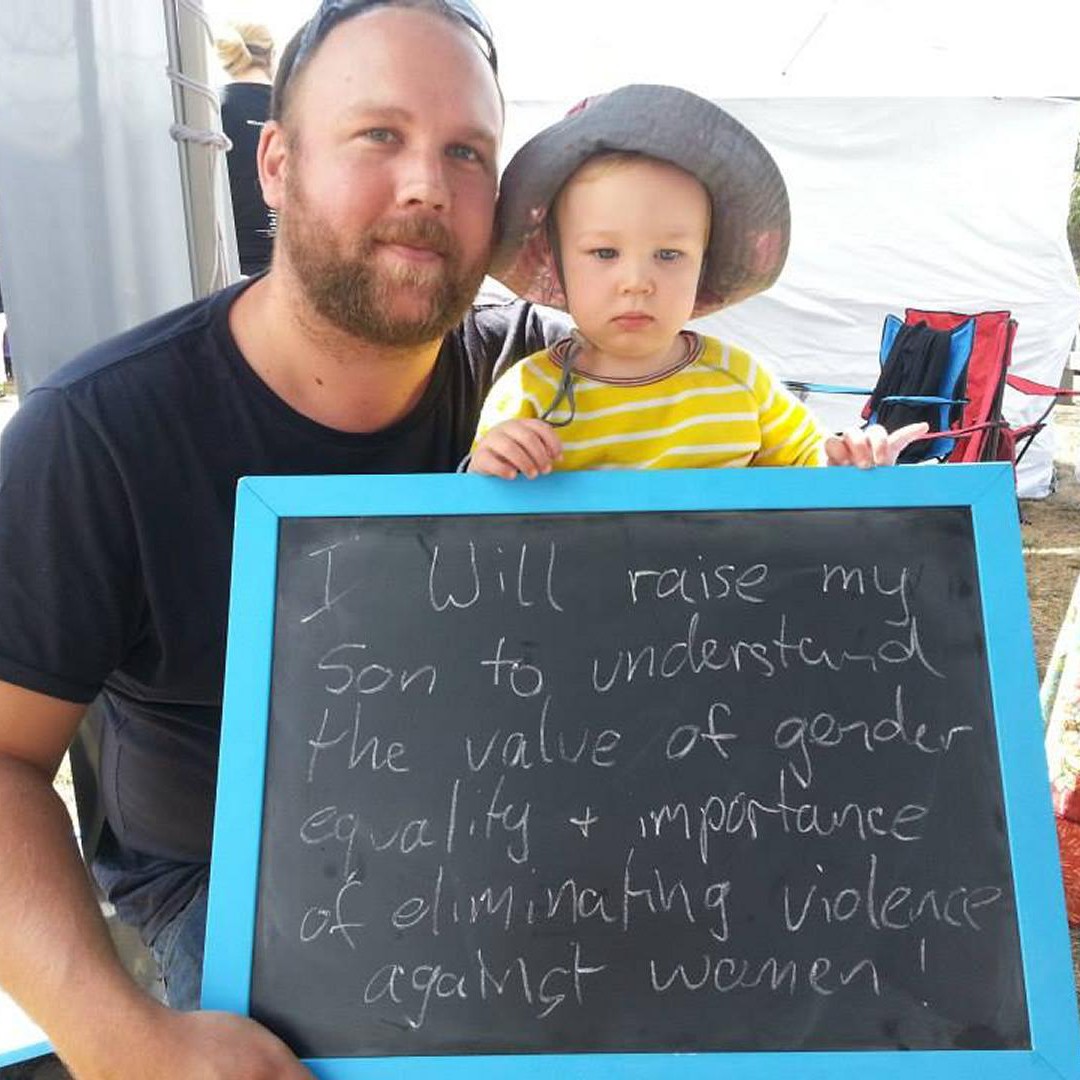 I Will raise my
Son to understand
the value of gender
equality + importance
of eliminating violence
against women!